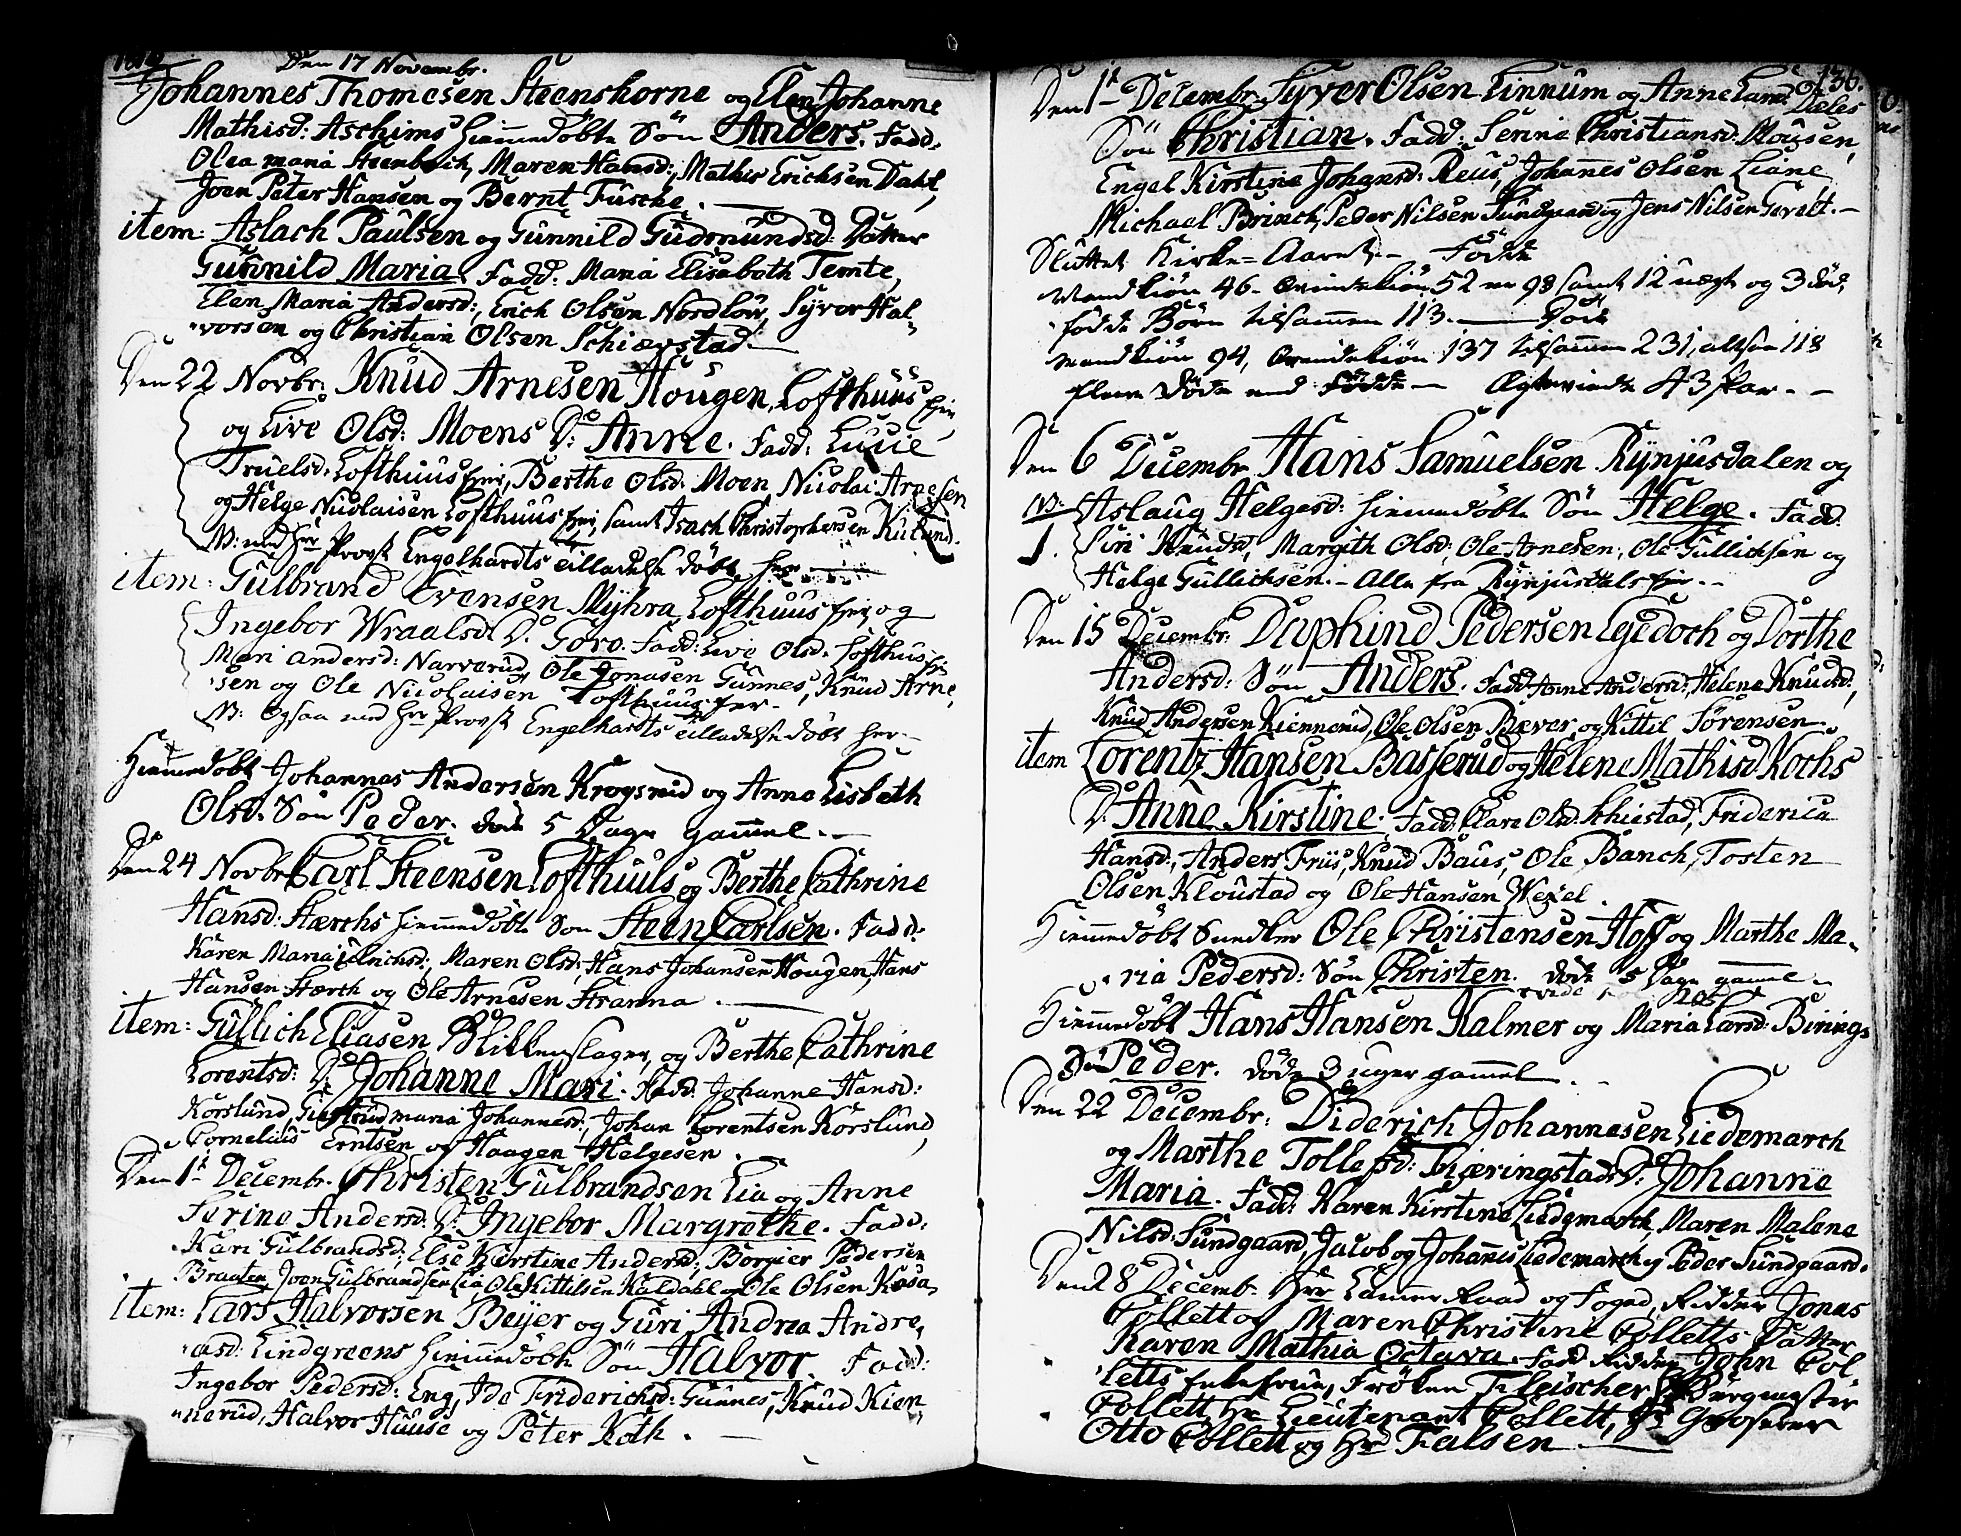 Den 17 Novembr.
Johannes Thomesen Steenshorne og Elen Johanne
Mathisd: Aschims hiemmedøbte Søn Anders. Fadd.
Olea maria Steenbech, Maren Hansd:, Mathis Erichsen Dahl,
Joen Peter Hansen og Bernt Fusche.
item: Aslach Paulsen og Gunnild Gudmundsd: Datter
Gunnild Maria. Fadd: Maria Elisabeth Temte,
Elen Maria Andersd:, Erich Olsen Nordløw, Syvor Hal-
vorsen og Christian Olsen Schiærstad.
Den 22 Novbr: Knud Arnesen Hougen, Lofthuus
og Live Olsd: Moens D: Anne. Fadd: Lucie
Truelsd: Lofthuus, Berthe Olsd: Moen, Nicolai Arnesen
og Helge Nicolaisen Lofthuus, samt Isach Christophersen
NB: med Hr Provst Engelhardts tilladelse døbt her
item: Gulbrand Evensen Myhra, Lofthuus og
Ingebor Wraalsd D. Goro. Fadd: Live Olsd. Lofthus
Mari Andersd: Narverud, Ole Jonasen Gunnes, Knud Arne-
sen og Ole Nicolaisen Lofthuus
NB: Ogsaa med Hr Provst Engelhardts tilladelse døbt her.
Hiemmedøbt Johannes Andersen Krogsrud og Anne Lisbeth
Olsd. Søn Peder. døde 5 Dage gammel.
Den 24 Novbr Carl Steensen Lofthuus og Berthe Cathrine
Hansd: Stærchs hiemmedøbte Søn Steen Carlsen. Fadd:
Karen Maria Ulrichsd:, Maren Olsd:, Hans Johansen Hougen, Hans
Hansen Stærch og Ole Arnesen Stranna.
item: Gullich Eliasen Blikkenslager, og Berthe Cathrine
Lorentsd: D. Johanne Mari. Fadd: Johanne Hansd:
Korslund, Giertrud maria Johannesd:, Johan Lorentsen Korslund,
Cornelius Erntsen og Haagen Helgesen.
Den 1te Decembr. Christen Gulbrandsen Lia og Anne
Serine Andersd: D: Ingebor Margrethe. Fadd:
Kari Gulbrandsd:, Else Kirstine Andersd:, Borgier Pedersen
Braaten, Joen Gulbrandsen Lia, Ole Kittilsen Kaldahl og Ole Olsen
item: Lars Halvorsen Beijer og Guri Andrea Andre-
asd: Lindgreens hiemmedøbte Søn Halvor. Fadd:
Ingebor Pedersd: Eng, Ide Friderichsd: Gunnes, Knud Kien-
nerud, Halvor Huuse og Peter Koth.
136.
Den 1te Decembr. Syver Olsen Linnum og Anne Lamb Dales
Søn Christian. Fadd: Serine Christiansd:
Engel Kirstine Johansd: Reus, Johannes Olsen Liane
Michael Brinch, Peder Nilsen Sundgaard og Jens Nilsen
Sluttet Kirke-Aaret. Fødte
Mandkiøn 46. Qvindekiøn 52 er 98 samt 12 uægt og 3 død-
fødte Børn tilsammen 113. Døde
mandkiøn 94, Qvindekiøn 137 tilsammen 231, altsaa 118
flere Døde end Fødte. Ægteviede 43 Par.
Den 6 Decembr Hans Samuelsen Rynjusdalen og
NB: Aslaug Helgesd: hiemmedøbte Søn Helge. Fadd:
Siri Knudsd, Margith Olsd:, Ole Arnesen, Ole Gullichsen og
Helge Gullichsen. Alle fra Rynjusdals
Den 15 Decembr: Daphind Pedersen Egedoch og Dorthe
Andersd: Søn Anders. Fadd: Anne Andersd:, Helene Knudsd:,
Knud Andersen Kiennerud, Ole Olsen Bæver, og Kittil Sørensen.
item Lorentz Hansen Basserud og Helene Mathisd Kochs
D: Anne Kirstine. Fadd: Clare Olsd: Schiestad, Friderica
Hansd:, Anders Friis, Knud Baus, Ole Banch, Tosten
Olsen Kloustad og Ole Hansen Wexel.
Hiemmedøbt Snedker Ole Christensen Hoff og Marthe Ma-
ria Pedersd: Søn Christen. døde 5 Dage gammel.
Hiemmedøbt Hans Hansen Kalmer og Maria Larsd: Birings
Søn Peder. døde 3 uger gammel.
Den 22 Decembr: Diderich Johannesen Liedemarch
og Marthe Tollefsd: Kiæringstad D: Johanne
Maria. Fadd: Karen Kirstine Liedemarch, Maren Malene
Nilsd: Sundgaard, Jacob og Johannis Liedemarch og Peder Sundgaard.
Den 28 Decemb. Hrr Kamer Raad og Foged, Ridder Jonas
Collett og Maren Christine Colletts Datter
Karen Mathia Octava. Fadd Ridder John Col-
letts Frøken Fleischer, Borgmester
Collett, Hr Lieutenant Collett, Hr Grosserer
Otto Collett og Hr Falsen.